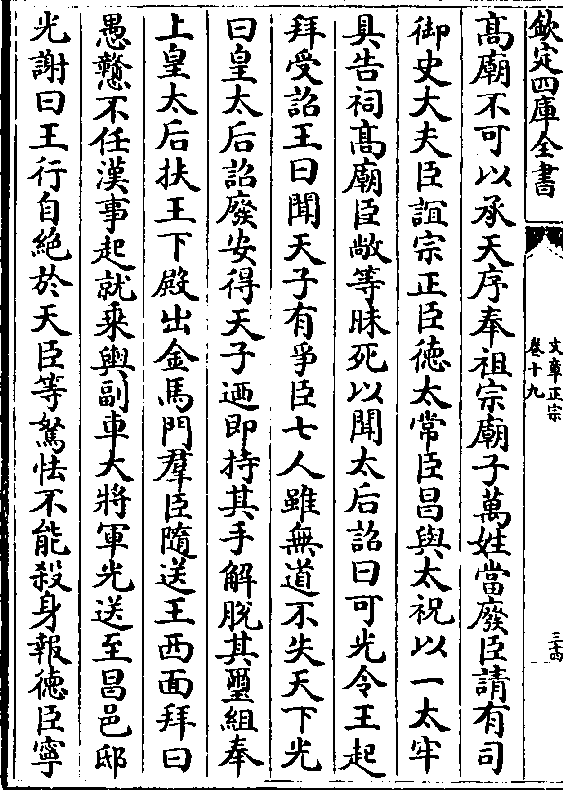 欽定四庫全書
文章正宗
卷十九
三十四
高廟不可以承天序奉祖宗廟子萬姓當廢臣請有司
御史大夫臣誼宗正臣徳太常臣昌與太祝以一太牢
具告祠高廟臣敞等昧死以聞太后詔曰可光令王起
拜受詔王曰聞天子有爭臣七人雖無道不失天下光
曰皇太后詔廢安得天子迺即持其手解脱其璽組奉
上皇太后扶王下殿出金馬門羣臣隨送王西面拜曰
愚戇不任漢事起就乘輿副車大將軍光送至昌邑邸
光謝曰王行自絶於天臣等駑怯不能殺身報徳臣寧